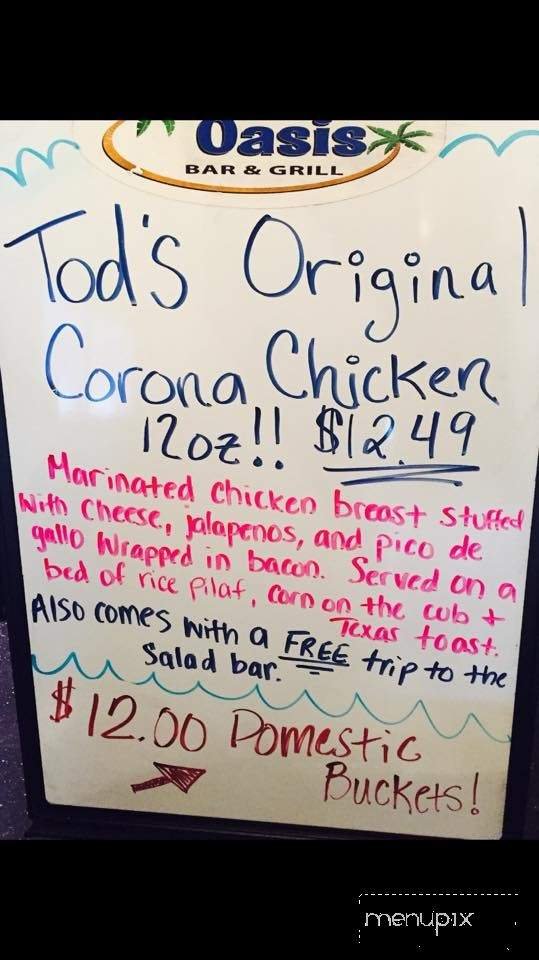 Oasis
BAR & GRILL
Tod's Original
Corona Chicken
12oz!! $12.49
Marinated chicken breast stuffed
with cheese, jalapenos, and pico de
gallo Wrapped in bacon. Served on a
bed of rice pilaf, corn on the cob +
Texas toast.
Also comes with a FREE trip to the
Salad bar.
$12.00 Domestic
Buckets!
menupix